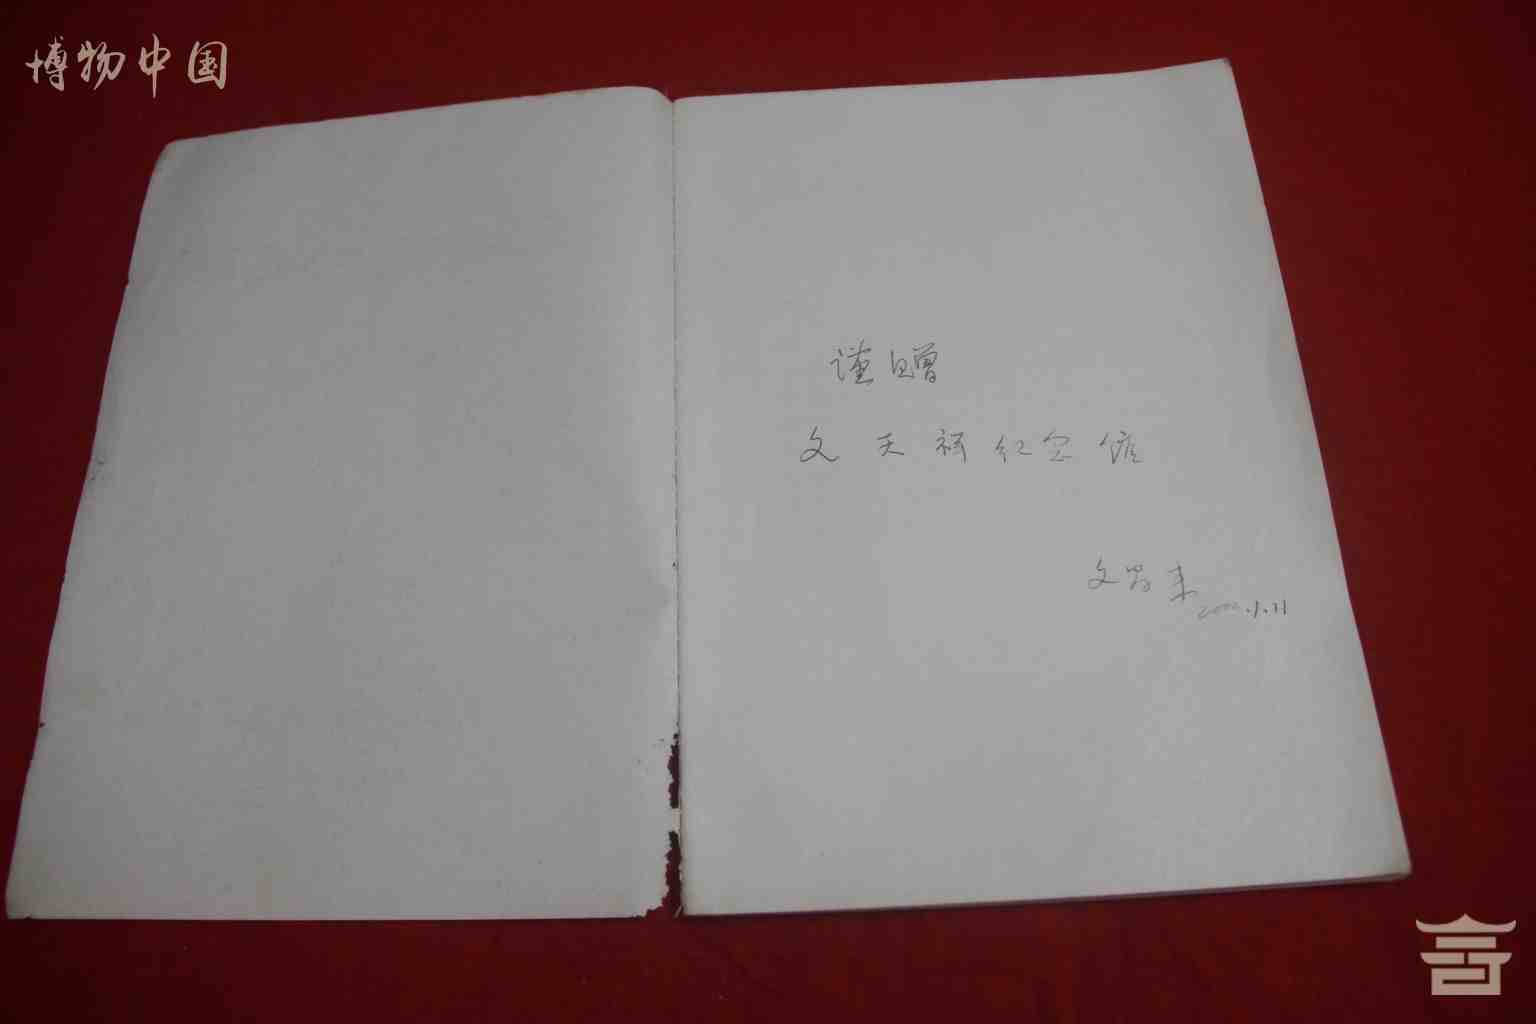 博物中国
谨赠
文天祥纪念馆
文
2002.1.11